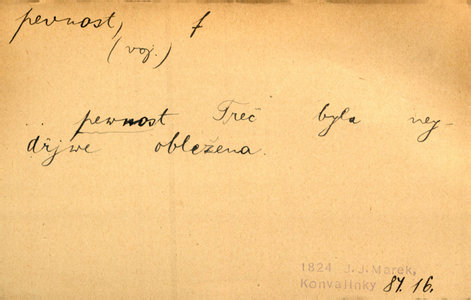 pevnost, f
(voj.)
.. pewnost Treč byla ney-
dřjwe obležena.
1824 J.J.Marek,
Konvalinky 87.16.